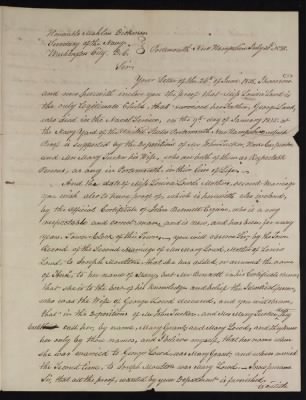 Honorable Mahlon Dickerson
Secretary of the Navy
Washington City, D.C.
Portsmouth New Hampshire July 1838.
Sir,
Your letter of the 26th of June, 1838, I received
and now herewith enclose you the proof that Miss Louisa Lord is
the only Legitimate Child, that survived her Father, George Lord,
who died in the Naval Service, on the 9th day of January 1815. at
the Navy Yard of the United States Portsmouth New Hampshire, which
proof is supported by the deposition of Mr John Tucker,
and Mrs Mary Tucker his Wife, who are both of them as respectable
Persons, as any in Portsmouth in their line of Life.
And the date of Miss Louisa Lord's Mother, second marriage
you wish also to have proof of, which is herewith also enclosed,
by the Official Certificate of John Bennett Esquire, who is a very
respectable and correct man, and is now, and has been for many
years, Town Clerk of this Town. you will observe, by the Town
Record of the Second Marriage of Mrs Mary Lord, Mother of Louisa
Lord, to Joseph Moulton, that she has added, or assumed the name
of to her name of Mary, but Mr Bennett in his Certificate states,
that she is to the best of his knowledge and belief the identical person,
who was the Wife of George Lord deceased, and you will observe,
that in the deposition of Mr John Tucker, and Mrs Mary Tucker, they
call her, by name, Mary Grant, and Mary Lord, and they knew
her only by these names, and I believe myself, that her name when
she was married to George Lord, was Mary Grant, and when married
the Second time, to Joseph Moulton was Mary Lord. I now presume
Sir, that all the proof, wanted by your Department is furnished,